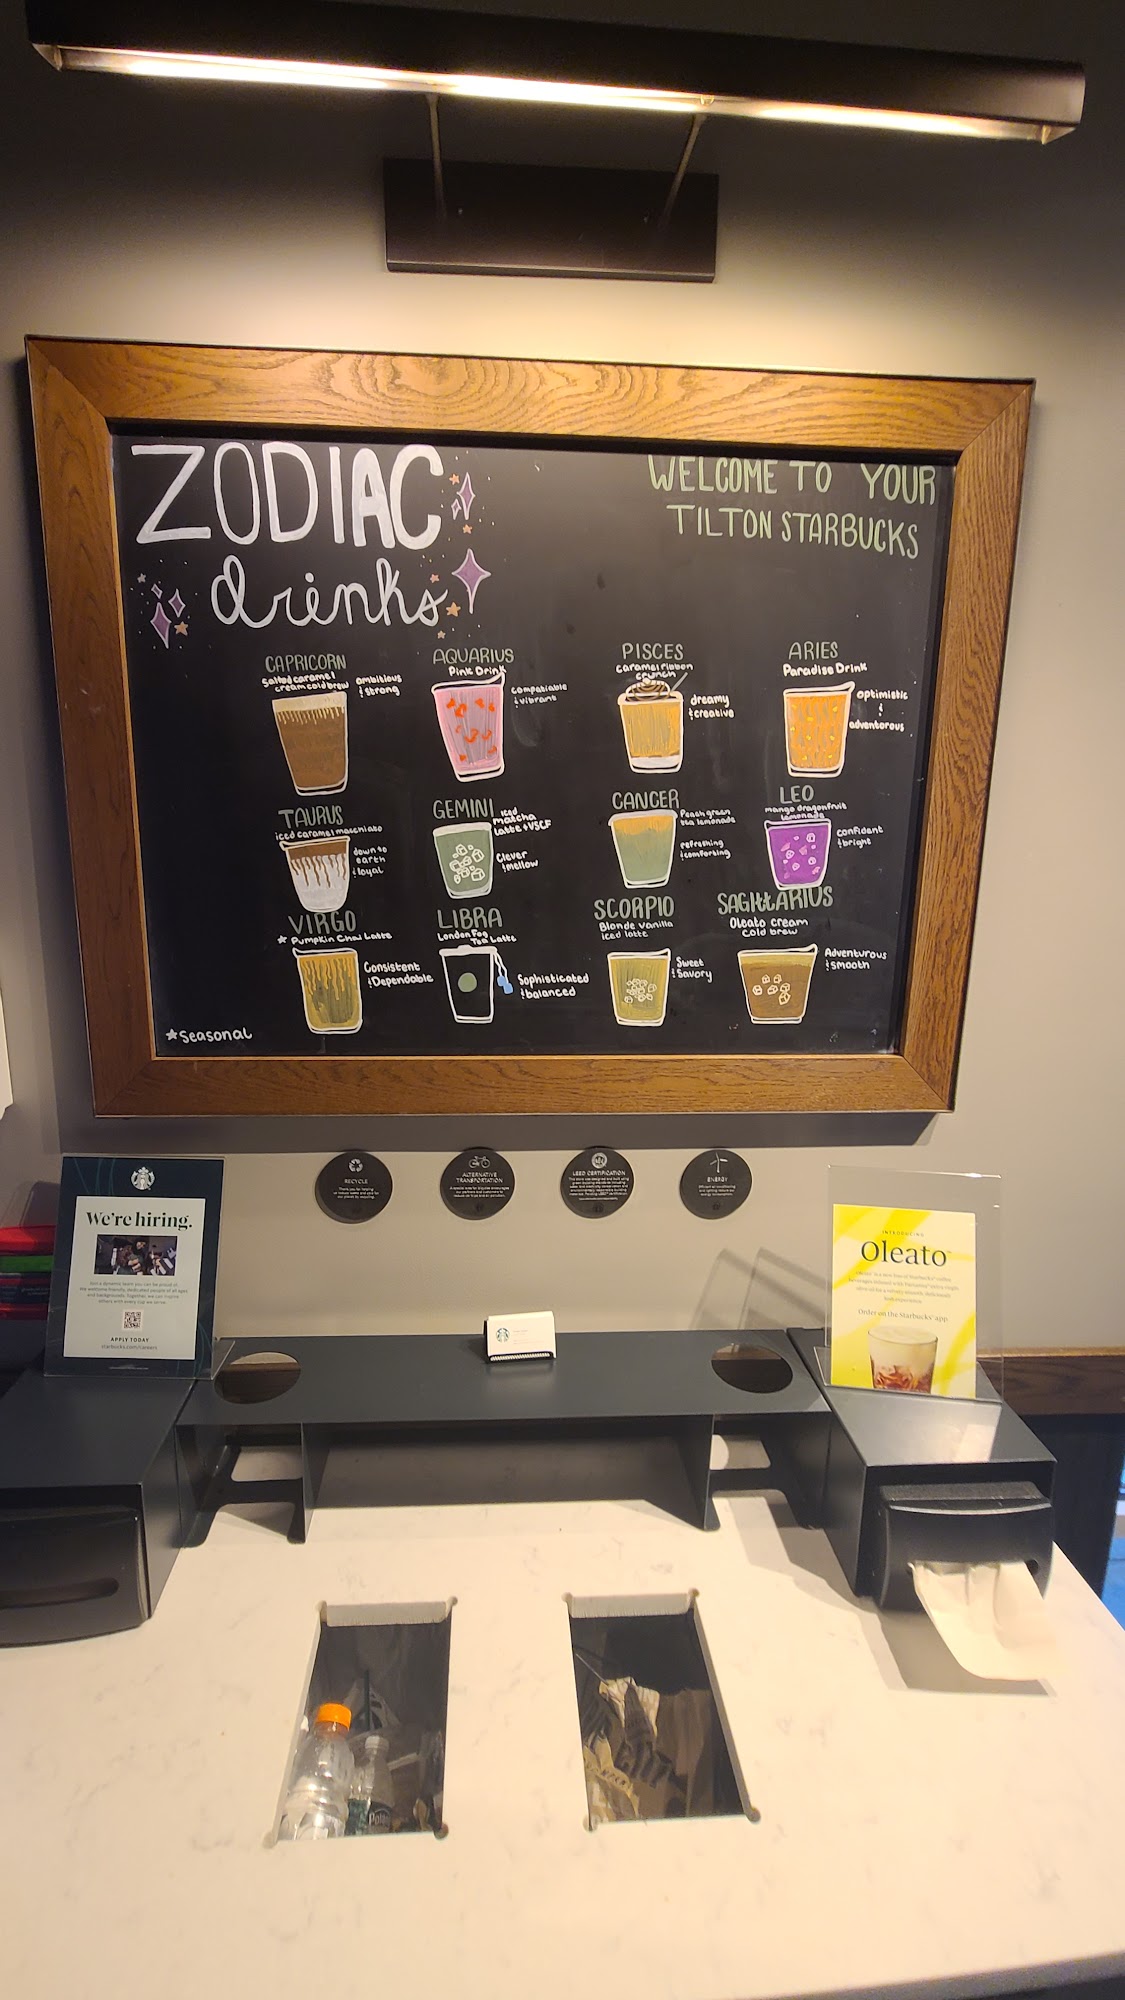 ZODIAC
drinks
WELCOME TO YOUR
TILTON STARBUCKS
CAPRICORN
Salted caramel
cream cold brew
ambitious
& strong
AQUARIUS
Pink Drink
compatiable
& vibrant
PISCES
caramel ribbon
crunch
dreamy
& creative
ARIES
Paradise Drink
optimistic
&
adventorous
TAURUS
iced caramel macchiato
down to
earth
& loyal
GEMINI
iced
matcha
latte + VSCF
Clever
& mellow
CANCER
Peach green
tea lemonade
refreshing
& comforting
LEO
mango dragonfruit
lemonade
confident
& bright
VIRGO
* Pumpkin Chai Latte
Consistent
& Dependable
LIBRA
London Fog
Tea Latte
Sophisticated
& balanced
SCORPIO
Blonde Vanilla
iced latte
Sweet
& Savory
SAGIttARIUS
Oleato cream
cold brew
Adventurous
& smooth
*Seasonal
We're hiring.
Join a dynamic team you can be proud of.
APPLY TODAY
starbucks.com/careers
RECYCLE
ALTERNATIVE
TRANSPORTATION
LEED CERTIFICATION
ENERGY
INTRODUCING
Oleato™
Order on the Starbucks® app